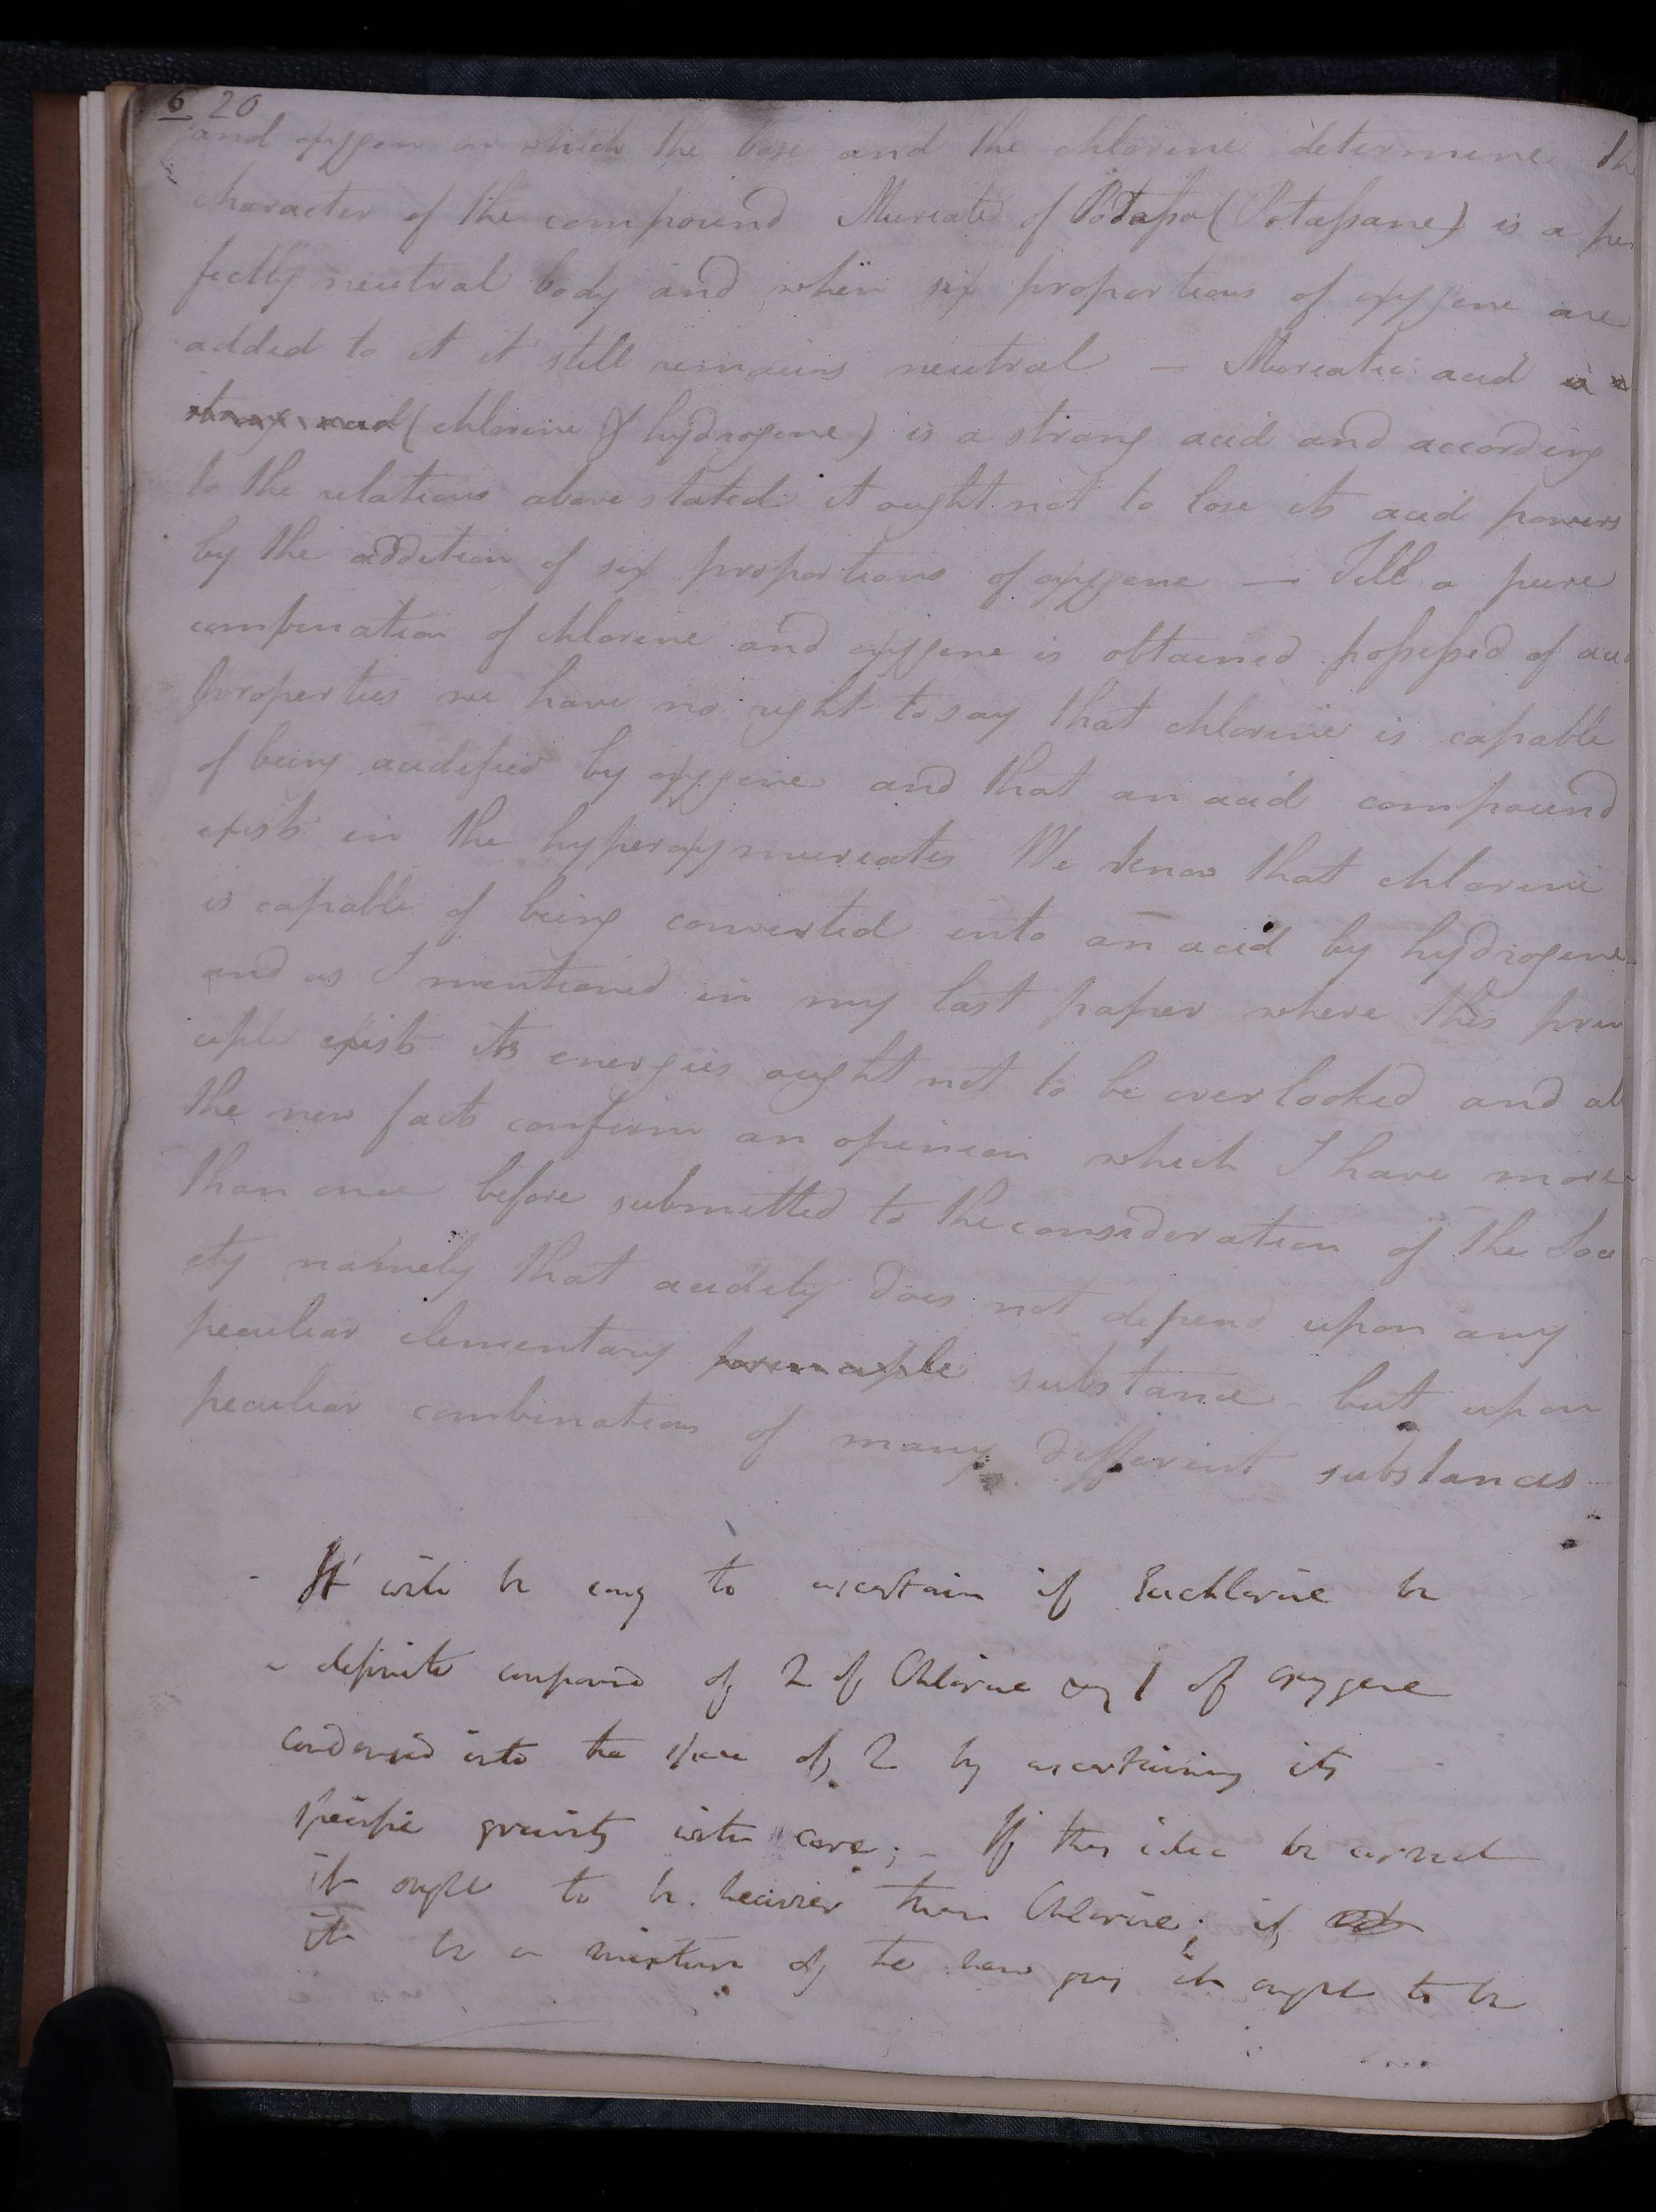 6 20
and oxygen in which the base and the chlorine determine the
character of the compound Muriate of Potassa (Potassane) is a per
fectly neutral body and when six proportions of oxygene are
added to it it still remains neutral — Muriatic acid is a
strong acid (chlorine & hydrogene) is a strong acid and according
to the relations above stated it ought not to lose its acid powers
by the addition of six proportions of oxygene — Till a pure
combination of chlorine and oxygene is obtained possessed of acid
properties we have no right to say that chlorine is capable
of being acidified by oxygene and that an acid compound
exists in the hyperoxymuriates We know that chlorine
is capable of being converted into an acid by hydrogene
and as I mentioned in my last paper where this prin
ciple exists its energies ought not to be overlooked and all
the new facts confirm an opinion which I have more
than once before submitted to the consideration of the Soci
ety namely that acidity does not depend upon any
peculiar elementary principle substance but upon
peculiar combinations of many different substances
- It will be easy to ascertain if Euchlorine be
a definite compound of 2 of Chlorine & 1 of oxygene
condensed into the space of 2 by ascertaining its
specific gravity with care; - If this idea be correct
it ought to be heavier than Chlorine; if
it be a mixture of the new gas it ought to be